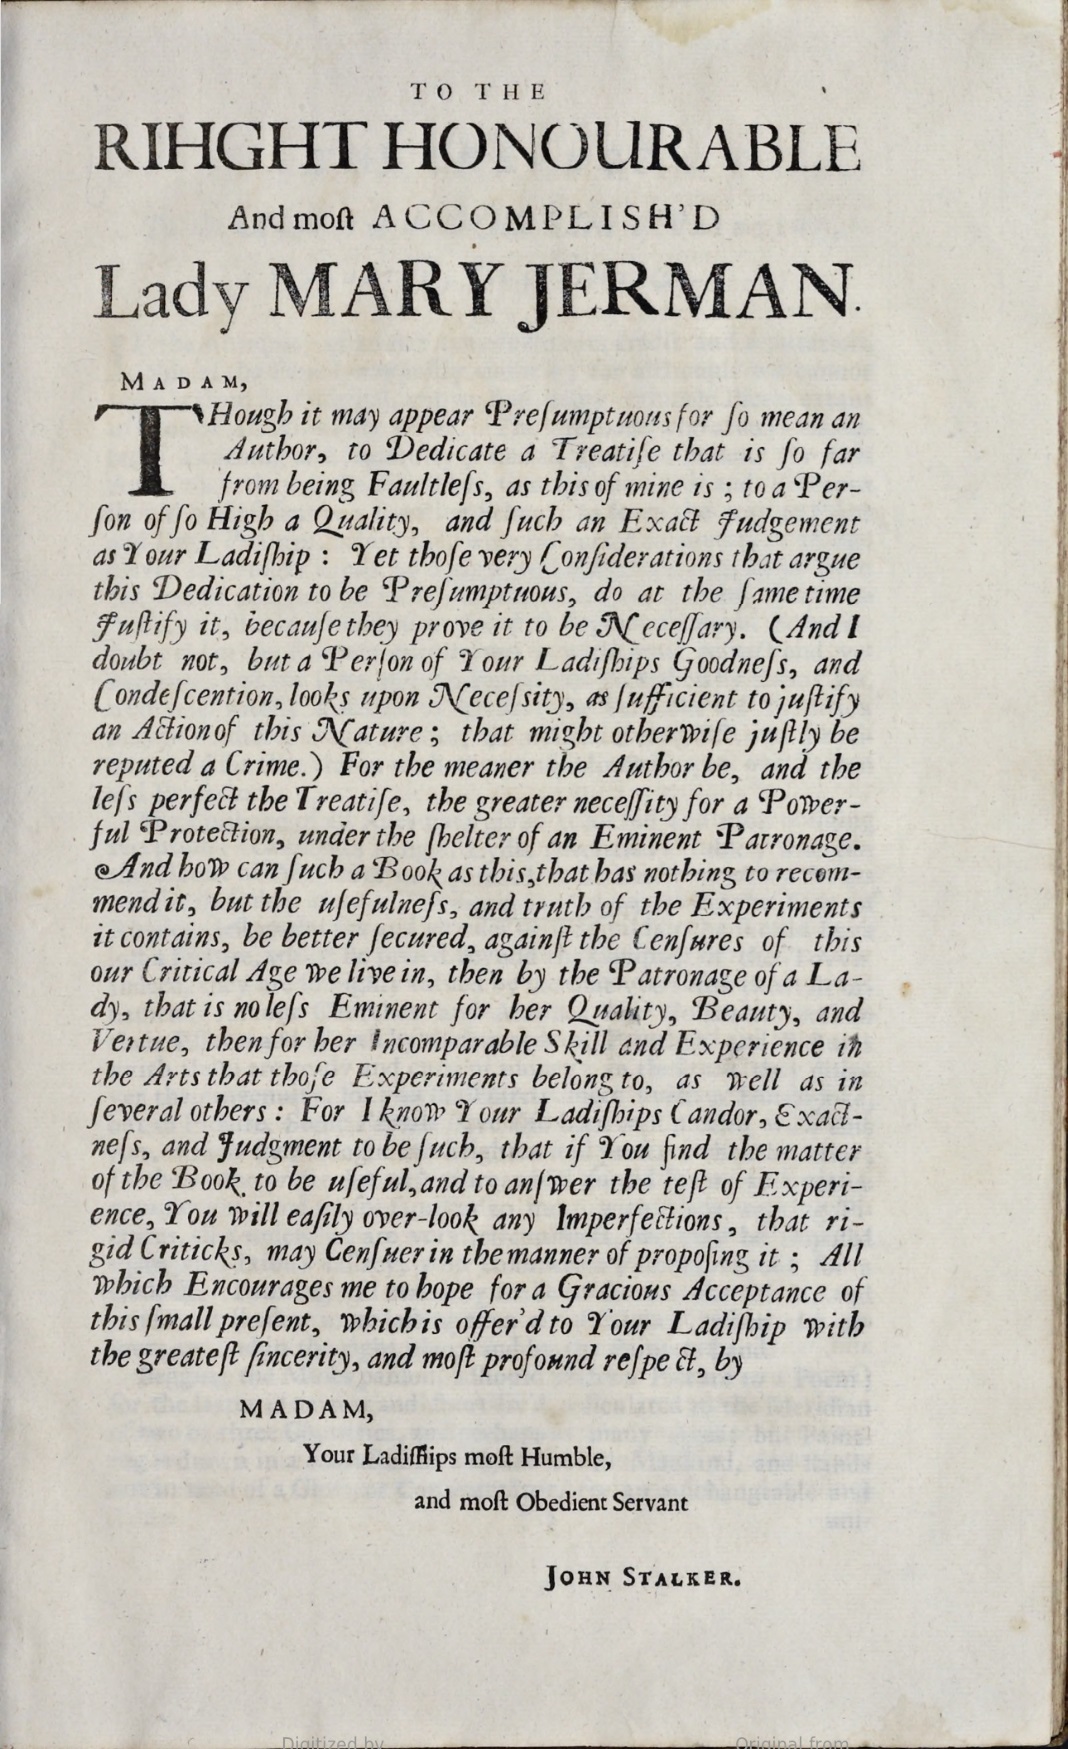 TO THE
RIHGHT HONOURABLE
And moſt ACCOMPLISH'D
Lady MARY JERMAN.
MADAM,
THough it may appear Preſumptuous for ſo mean an
Author, to Dedicate a Treatiſe that is ſo far
from being Faultleſs, as this of mine is ; to a Per-
ſon of ſo High a Quality, and ſuch an Exact Judgement
as Your Ladiſhip : Yet thoſe very Conſiderations that argue
this Dedication to be Preſumptuous, do at the ſame time
Juſtify it, becauſe they prove it to be Neceſſary. (And I
doubt not, but a Perſon of Your Ladiſhips Goodneſs, and
Condeſcention, looks upon Neceſsity, as ſufficient to juſtify
an Action of this Nature ; that might otherwiſe juſtly be
reputed a Crime.) For the meaner the Author be, and the
leſs perfect the Treatiſe, the greater neceſſity for a Power-
ful Protection, under the ſhelter of an Eminent Patronage.
And how can ſuch a Book as this, that has nothing to recom-
mend it, but the uſefulneſs, and truth of the Experiments
it contains, be better ſecured, againſt the Cenſures of this
our Critical Age we live in, then by the Patronage of a La-
dy, that is no leſs Eminent for her Quality, Beauty, and
Vertue, then for her Incomparable Skill and Experience in
the Arts that thoſe Experiments belong to, as well as in
ſeveral others : For I know Your Ladiſhips Candor, Exact-
neſs, and Judgment to be ſuch, that if You find the matter
of the Book to be uſeful, and to anſwer the teſt of Experi-
ence, You will eaſily over-look any Imperfections, that ri-
gid Criticks, may Cenſuer in the manner of propoſing it ; All
which Encourages me to hope for a Gracious Acceptance of
this ſmall preſent, which is offer'd to Your Ladiſhip with
the greateſt ſincerity, and moſt profound reſpect, by
MADAM,
Your Ladiſhips moſt Humble,
and moſt Obedient Servant
JOHN STALKER.
Digitized by
Original from